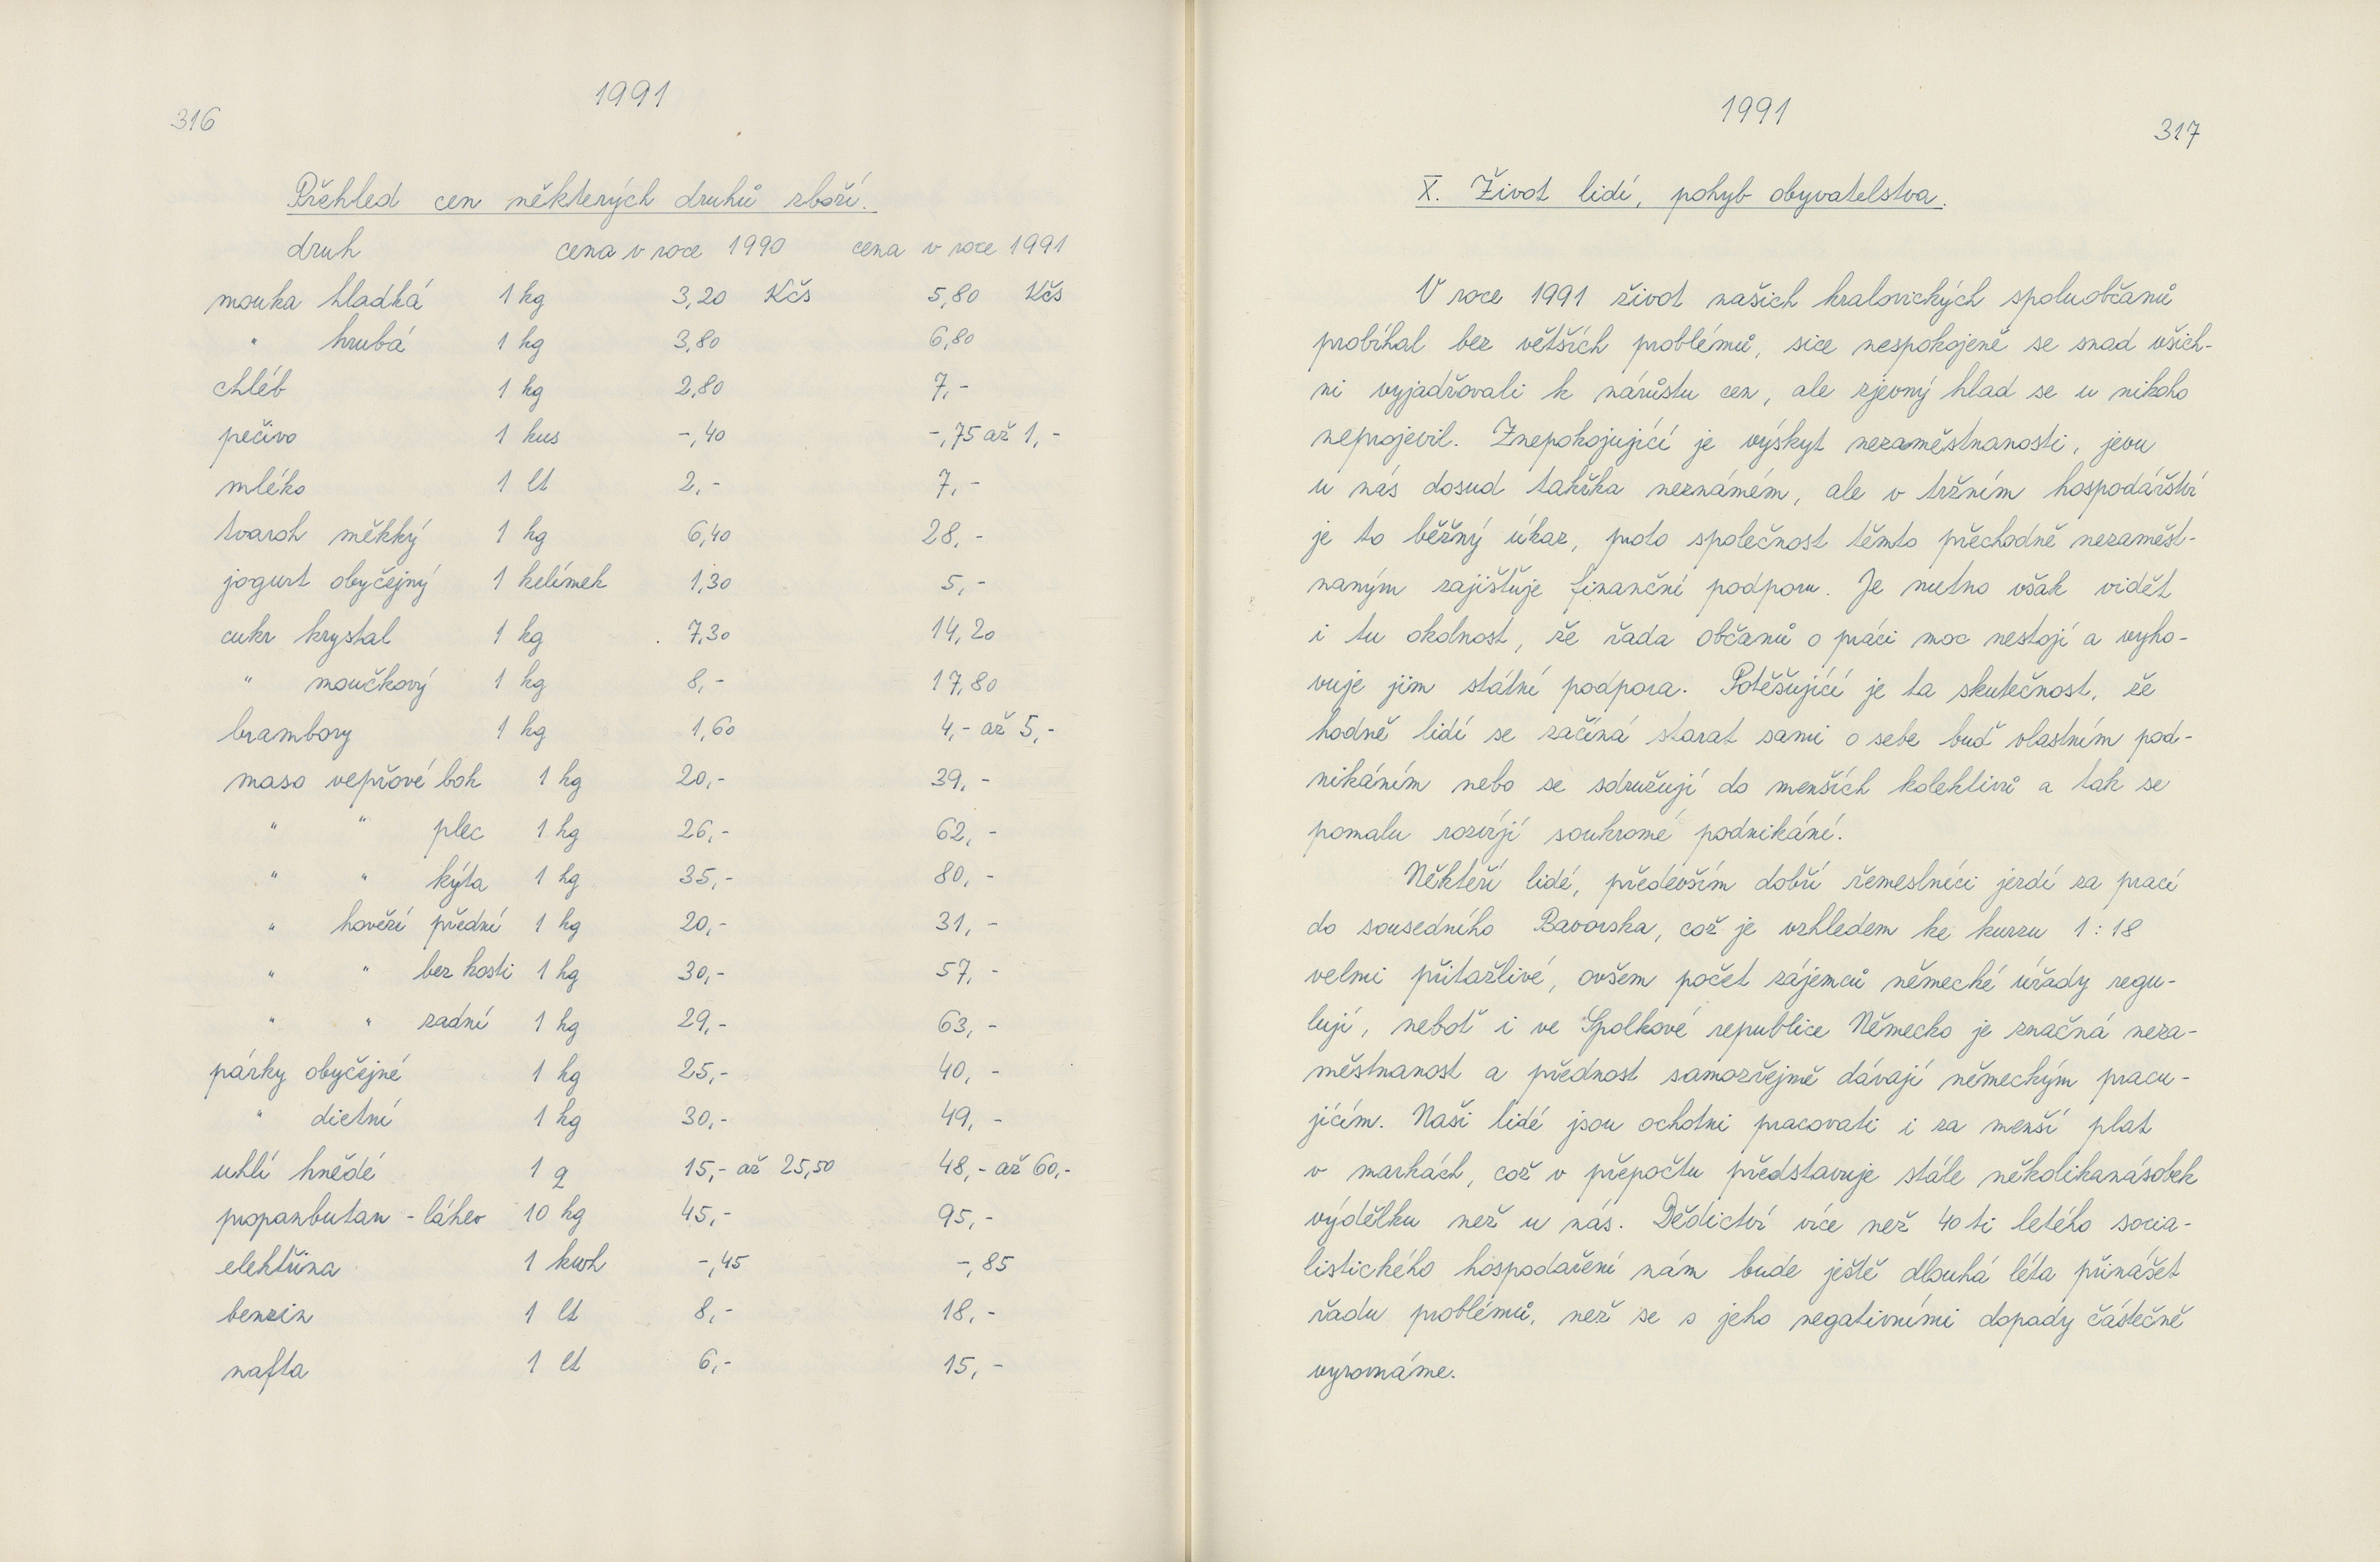 316
1991
Přehled cen některých druhů zboží.
druh cena v roce 1990 cena v roce 1991
mouka hladká 1 kg 3,20 Kčs 5,80 Kčs
" hrubá 1 kg 3,80 6,80
chléb 1 kg 2,80 7,-
pečivo 1 kus -,40 -,75 až 1,-
mléko 1 lt 2,- 7,-
tvaroh měkký 1 kg 6,40 28,-
jogurt obyčejný 1 kelímek 1,30 5,-
cukr krystal 1 kg 7,30 14,20
" moučkový 1 kg 8,- 17,80
brambory 1 kg 1,60 4,- až 5,-
maso vepřové bok 1 kg 20,- 39,-
" " plec 1 kg 26,- 62,-
" " kýta 1 kg 35,- 80,-
" hovězí přední 1 kg 20,- 31,-
" " bez kosti 1 kg 30,- 57,-
" " zadní 1 kg 29,- 63,-
párky obyčejné 1 kg 25,- 40,-
" dietní 1 kg 30,- 49,-
uhlí hnědé 1 q 15,- až 25,50 48,- až 60,-
propanbutan - láhev 10 kg 45,- 95,-
elektřina 1 kwh -,45 -,85
benzin 1 lt 8,- 18,-
nafta 1 lt 6,- 15,-
1991
317
X. Život lidí, pohyb obyvatelstva.
V roce 1991 život našich kralovických spoluobčanů
probíhal bez větších problémů, sice nespokojeně se snad všich-
ni vyjadřovali k nárůstu cen, ale zjevný hlad se u nikoho
neprojevil. Znepokojující je výskyt nezaměstnanosti, jevu
u nás dosud takřka neznámém, ale v tržním hospodářství
je to běžný úkaz, proto společnost těmto přechodně nezaměst-
naným zajišťuje finanční podporu. Je nutno však vidět
i tu okolnost, že řada občanů o práci moc nestojí a vyho-
vuje jim státní podpora. Potěšující je ta skutečnost, že
hodně lidí se začíná starat sami o sebe buď vlastním pod-
nikáním nebo se sdružují do menších kolektivů a tak se
pomalu rozvíjí soukromé podnikání.
Někteří lidé, především dobří řemeslníci jezdí za prací
do sousedního Bavorska, což je vzhledem ke kurzu 1:18
velmi přitažlivé, ovšem počet zájemců německé úřady regu-
lují, neboť i ve Spolkové republice Německo je značná neza-
městnanost a přednost samozřejmě dávají německým pracu-
jícím. Naši lidé jsou ochotni pracovati i za menší plat
v markách, což v přepočtu představuje stále několikanásobek
výdělku než u nás. Dědictví více než 40 ti letého socia-
listického hospodaření nám bude ještě dlouhá léta přinášet
řadu problémů, než se s jeho negativními dopady částečně
vyrovnáme.